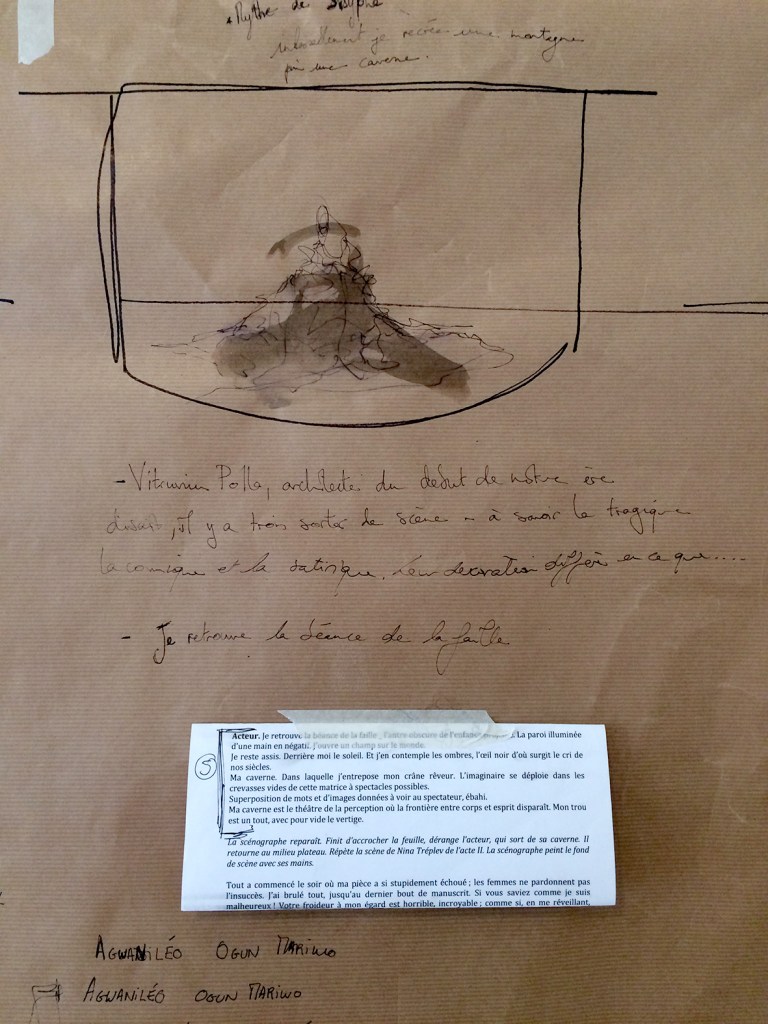 * Mythe de Sisyphe
je recrée une montagne
puis une caverne.
- Vitruvius Polla, architecte du debut de notre ère
disait, il y a trois sortes de scène - à savoir la tragique
la comique et la satirique. leur decoration diffère en ce que....
- Je retrouve la béance de la faille
Acteur. Je retrouve la béance de la faille, l'antre obscure de l'enfance La paroi illuminée
d'une main en négatif. J'ouvre un champ sur le monde.
Je reste assis. Derrière moi le soleil. Et j'en contemple les ombres, l'œil noir d'où surgit le cri de
nos siècles.
5
Ma caverne. Dans laquelle j'entrepose mon crâne rêveur. L'imaginaire se déploie dans les
crevasses vides de cette matrice à spectacles possibles.
Superposition de mots et d'images données à voir au spectateur, ébahi.
Ma caverne est le théâtre de la perception où la frontière entre corps et esprit disparaît. Mon trou
est un tout, avec pour vide le vertige.
La scénographe reparaît. Finit d'accrocher la feuille, dérange l'acteur, qui sort de sa caverne. Il
retourne au milieu plateau. Répète la scène de Nina Tréplev de l'acte II. La scénographe peint le fond
de scène avec ses mains.
Tout a commencé le soir où ma pièce a si stupidement échoué ; les femmes ne pardonnent pas
l'insuccès. J'ai brulé tout, jusqu'au dernier bout de manuscrit. Si vous saviez comme je suis
malheureux ! Votre froideur à mon égard est horrible, incroyable ; comme si, en me réveillant,
AGWANILÉO OGUN MARIWO
AGWANILÉO OGUN MARIWO